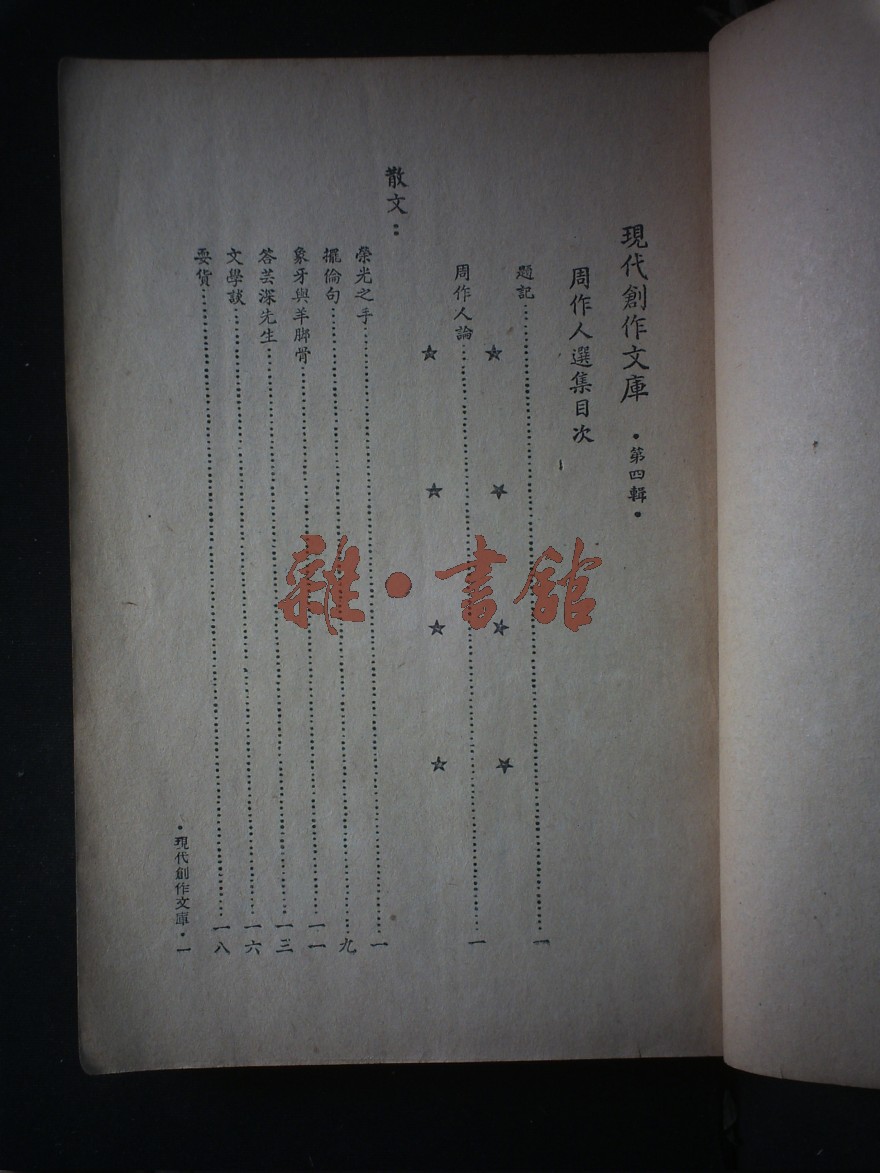 現代創作文庫 •第四輯•
周作人選集目次
題記……一
周作人論……一
散文：
榮光之手……一
擺倫句……九
象牙與羊脚骨……一一
答芸深先生……一三
文學談……一六
耍貨……一八
•現代創作文庫•一
雜•書館